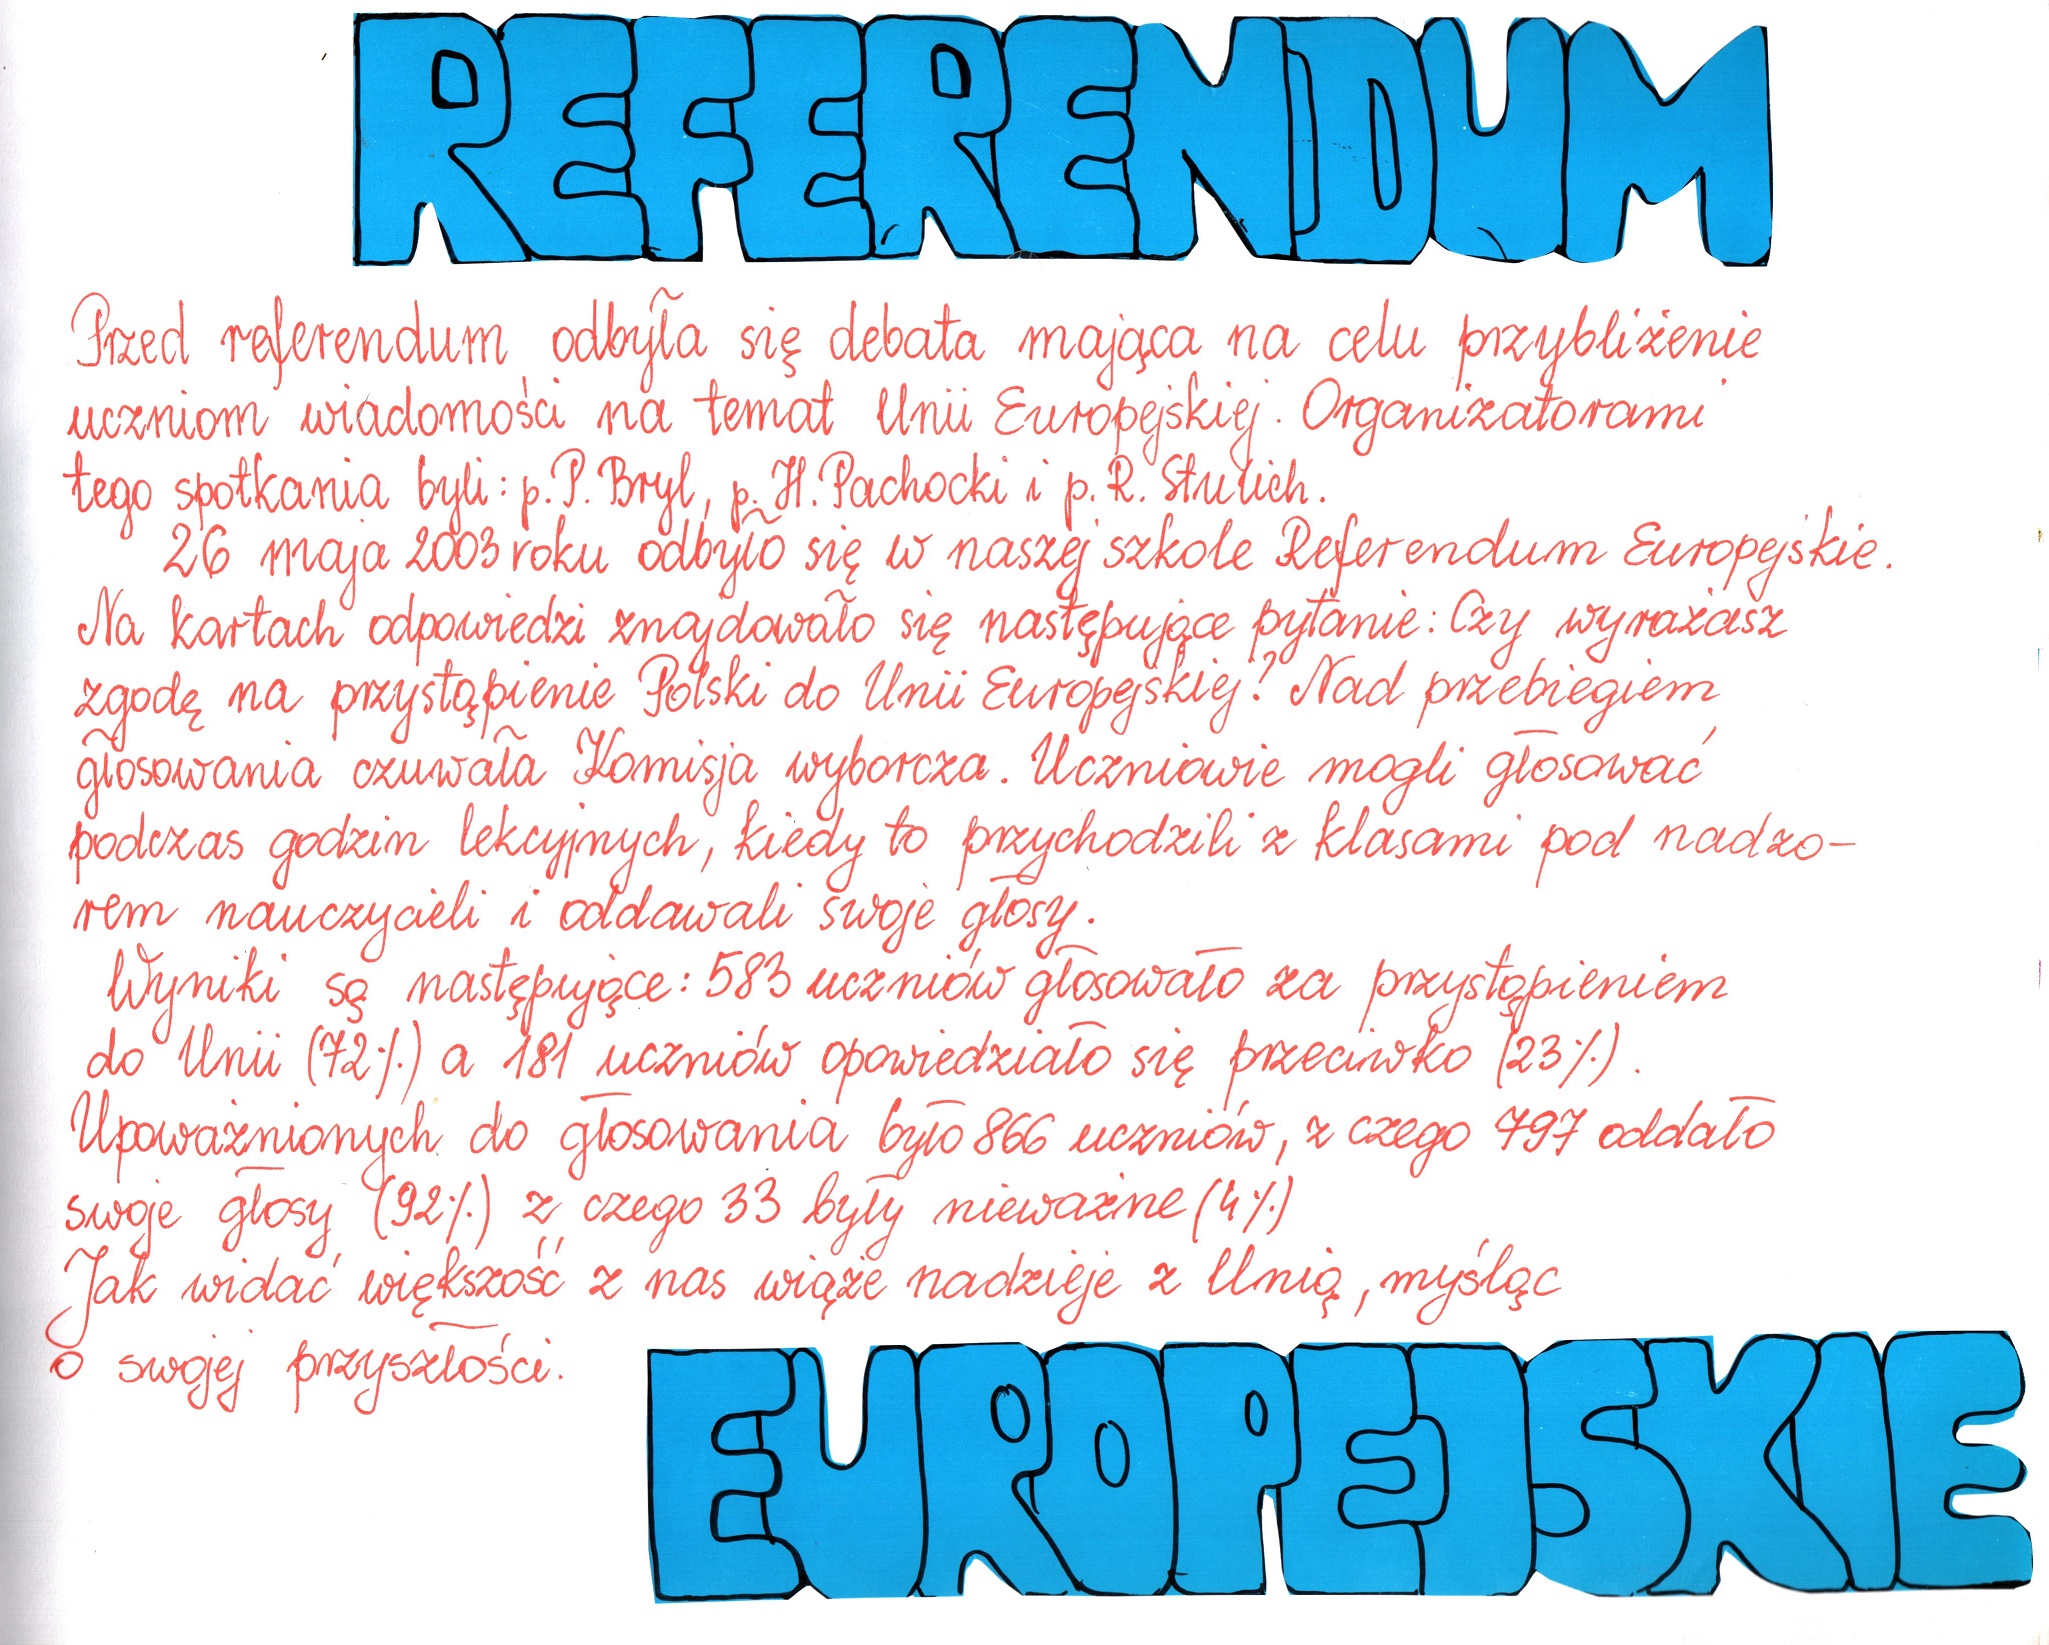 REFERENDUM
Przed referendum odbyła się debata mająca na celu przybliżenie
uczniom wiadomości na temat Unii Europejskiej. Organizatorami
tego spotkania byli: p. P. Bryl, p. H. Pachocki i p. R. Stulich.
26 maja 2003 roku odbyło się w naszej szkole Referendum Europejskie.
Na kartach odpowiedzi znajdowało się następujące pytanie: Czy wyrażasz
zgodę na przystąpienie Polski do Unii Europejskiej? Nad przebiegiem
głosowania czuwała Komisja wyborcza. Uczniowie mogli głosować
podczas godzin lekcyjnych, kiedy to przychodzili z klasami pod nadzo-
rem nauczycieli i oddawali swoje głosy.
Wyniki są następujące: 583 uczniów głosowało za przystąpieniem
do Unii (72%) a 181 uczniów opowiedziało się przeciwko (23%).
Upoważnionych do głosowania było 866 uczniów, z czego 797 oddało
swoje głosy (92%) z czego 33 były nieważne (4%)
Jak widać większość z nas wiąże nadzieje z Unią, myśląc
o swojej przyszłości.
EUROPEJSKIE